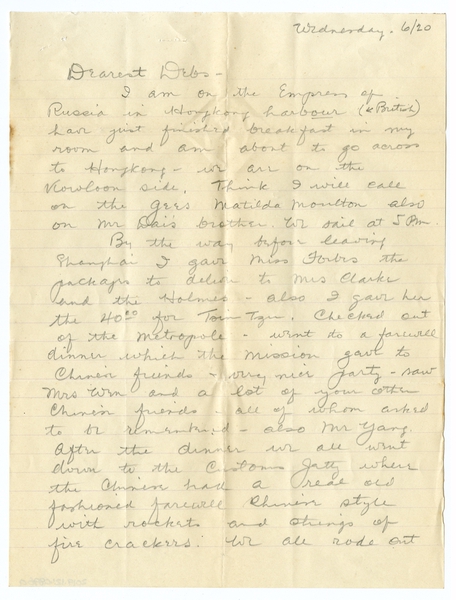 Wednesday. 6/20
Dearest Debs -
I am on the Empress of
Russia in Hongkong harbour (British)
have just finished breakfast in my
room and am about to go across
to Hongkong - we are on the
Kowloon side. Think I will call
on the Gees Matilda Moulton also
on Mr Dai's brother. We sail at 5 Pm.
By the way before leaving
Shanghai I gave Miss Forbes the
packages to deliver to Mrs Clarke
and the Holmes - also I gave her
the 40.00 for Tsin Tzu. Checked out
of the Metropole - went to a farewell
dinner which the Mission gave to
Chinese friends - very nice party - saw
Mrs Wen and a lot of your other
Chinese friends - all of whom asked
to be remembered - also Mr Yang.
After the dinner we all went
down to the Customs Jetty where
the Chinese had a real old
fashioned farewell Chinese style
with rockets and strings of
fire crackers. We all rode out